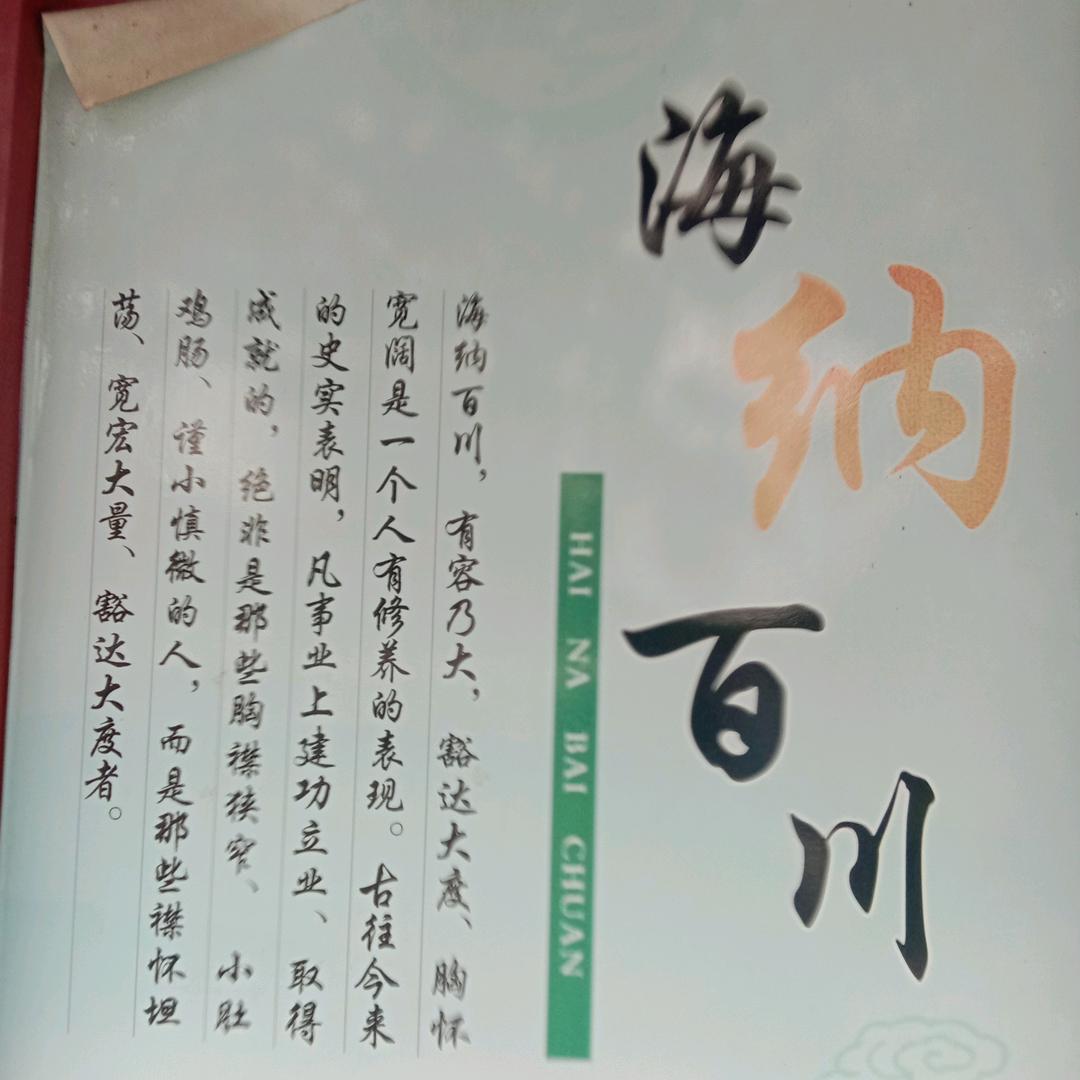 海纳百川
HAI NA BAI CHUAN
海纳百川，有容乃大，豁达大度、胸怀
宽阔是一个人有修养的表现。古往今来
的史实表明，凡事业上建功立业、取得
成就的，绝非是那些胸襟狭窄、小肚
鸡肠、谨小慎微的人，而是那些襟怀坦
荡、宽宏大量、豁达大度者。